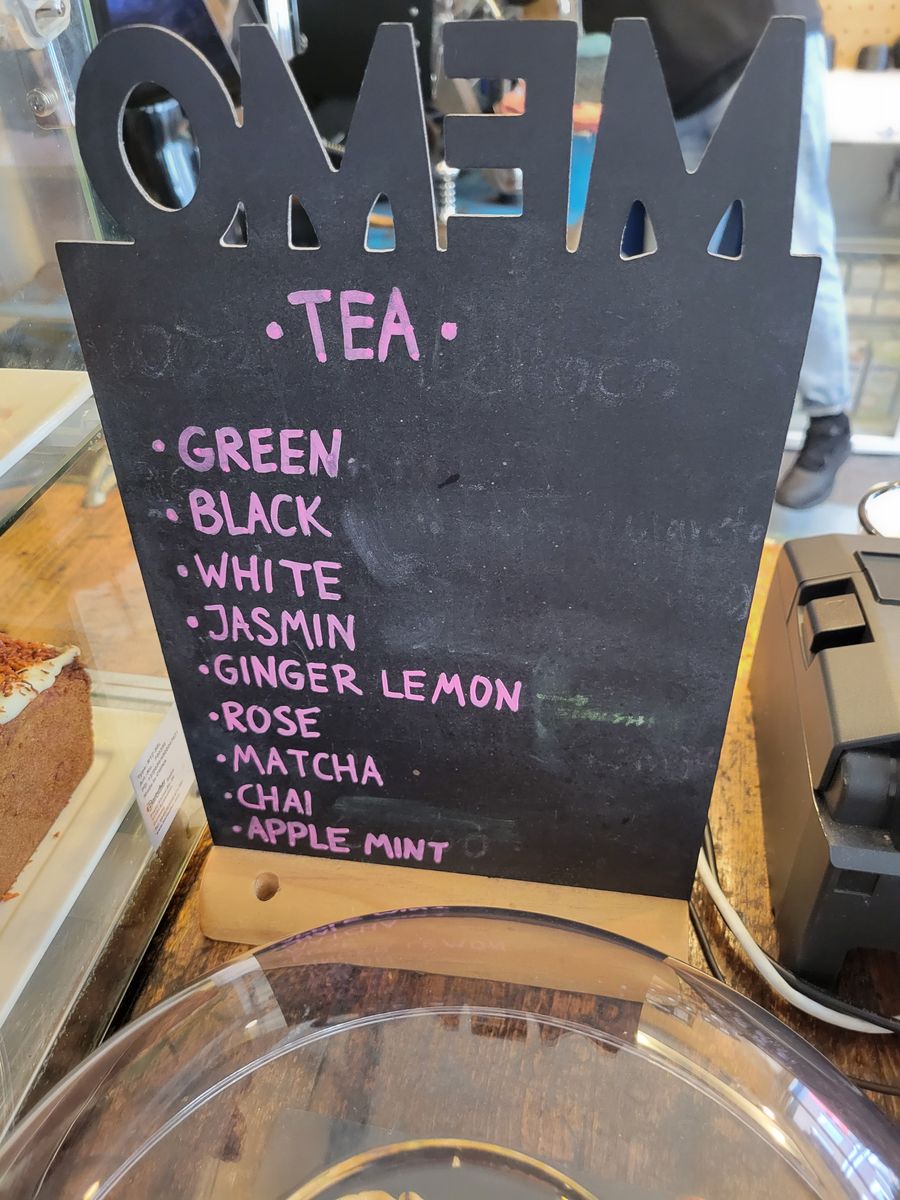 MEMO
• TEA •
choco
• GREEN
• BLACK
• WHITE
• JASMIN
• GINGER LEMON
• ROSE
• MATCHA
• CHAI
• APPLE MINT